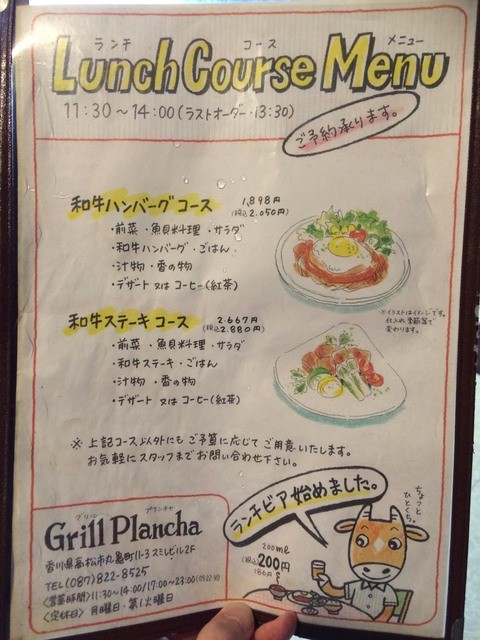 ランチ コース メニュー
Lunch Course Menu
11:30〜14:00(ラストオーダー・13:30)
ご予約承ります。
和牛ハンバーグコース 1,898円
(税込2,050円)
・前菜・魚貝料理・サラダ
・和牛ハンバーグ・ごはん
・汁物・香の物
・デザート又はコーヒー(紅茶)
※イラストはイメージです。
仕入れ、季節等で
変わります。
和牛ステーキコース 2,667円
(税込2,880円)
・前菜・魚貝料理・サラダ
・和牛ステーキ・ごはん
・汁物・香の物
・デザート又はコーヒー(紅茶)
※上記コース以外にもご予算に応じてご用意いたします。
お気軽にスタッフまでお問い合わせ下さい。
ランチビア始めました。
ちょっと、
ひとくち。
200ml
(税込)200円
186円
グリル プランチャ
Grill Plancha
香川県高松市丸亀町11-3 スミレビル2F
TEL(087)822-8525
〈営業時間〉11:30〜14:00/17:00〜23:00(OS22:30)
〈定休日〉月曜日・第1火曜日